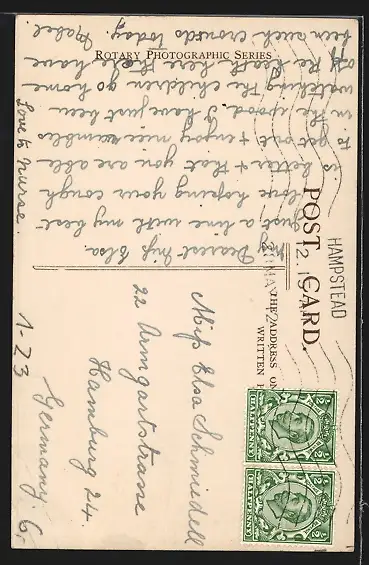 ROTARY PHOTOGRAPHIC SERIES
POST CARD.
THE ADDRESS ON
WRITTEN H
HAMPSTEAD
Dearest Miss Elsa.
Just a line with my best
love hoping your cough
is better & that you are able
to get out & enjoy nice rambles
in the wood. I have just been
watching the children go home
off the heath here there have
been such crowds today.
Mabel
Love to nurse.
Miss Elsa Schmiedell
22 Armgartstrasse
Hamburg 24.
Germany. G.
1-23
HALFPENNY
HALFPENNY